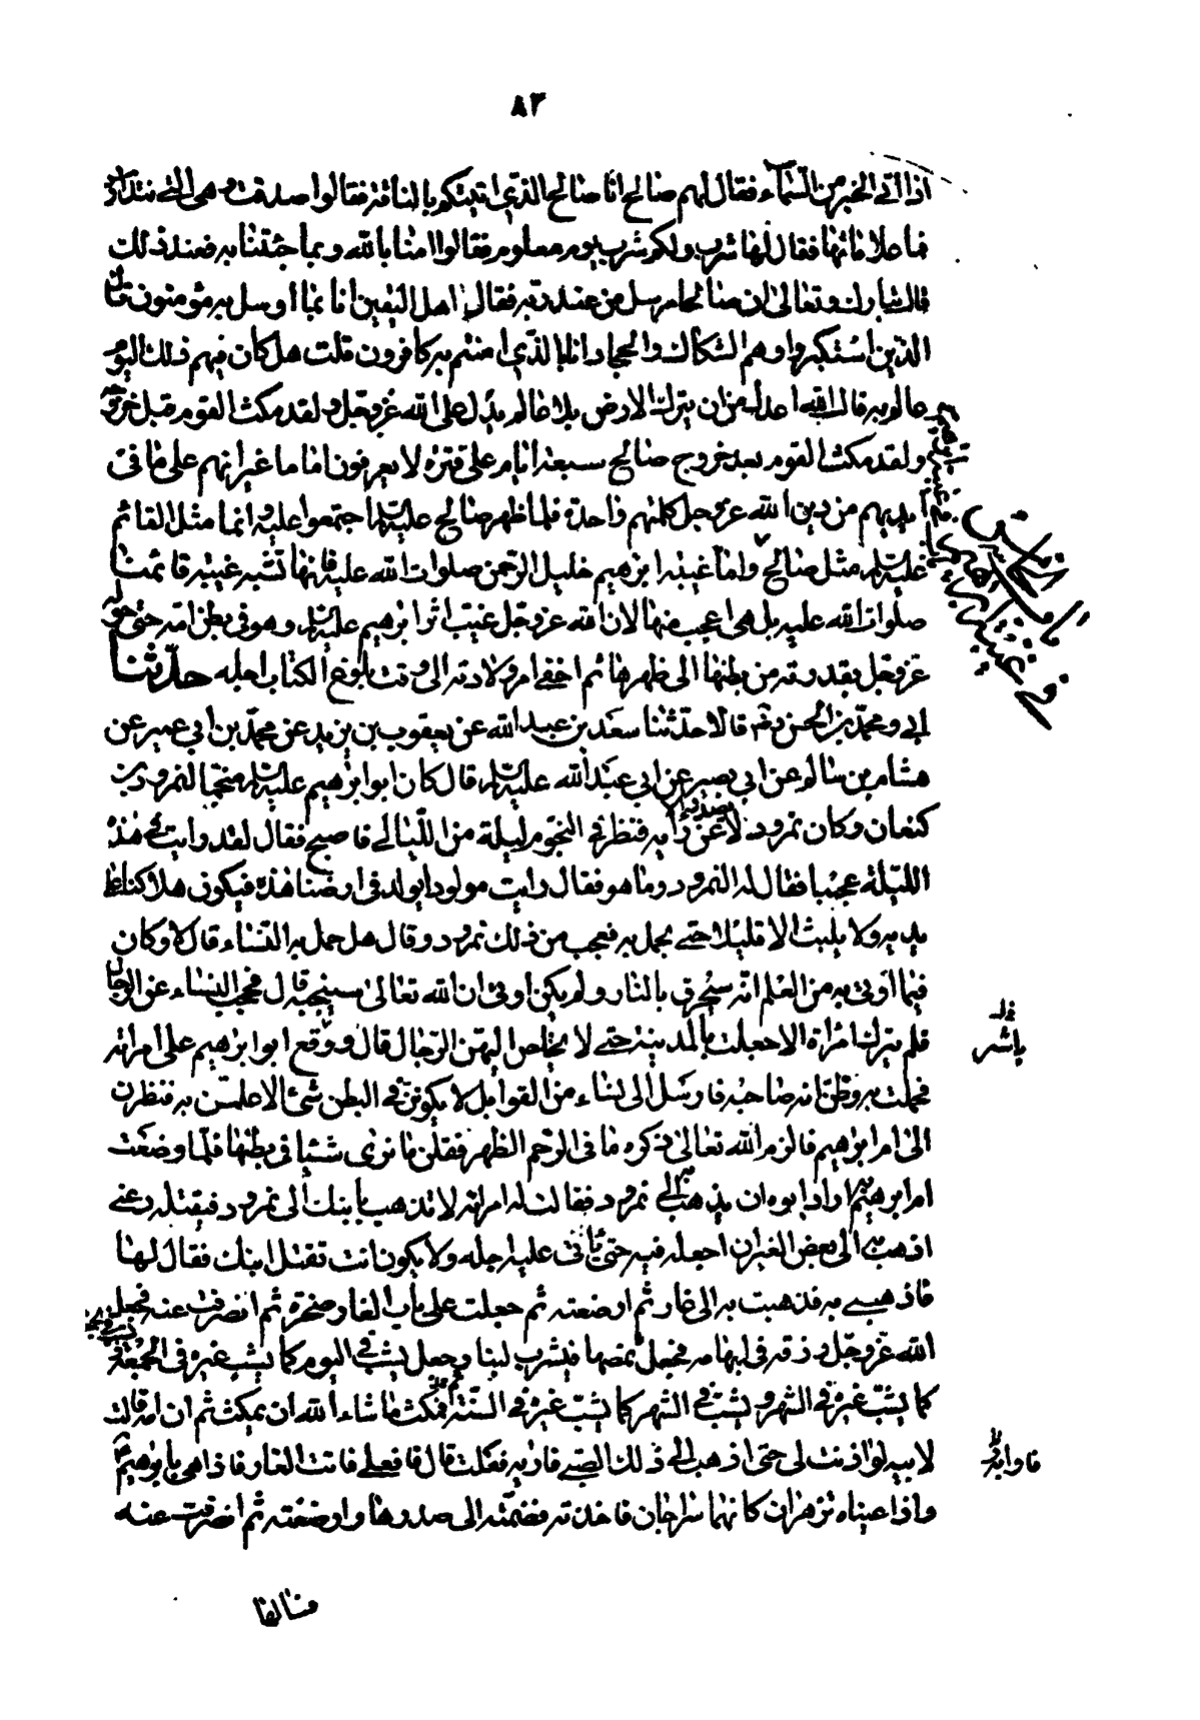 ٨٣
اذا اتى الخبر من السماء فقال لهم صالح انا صالح الذى اتيتكم بالناقة فقالوا صدقت وهى التى نتدارس
فما علاماتها فقال لها شرب ولكم شرب يوم معلوم فقالوا امنا بالله وبما جئتنا به فعند ذلك
قال الله تبارك وتعالى ان صالحا مرسل من عند ربه فقال اهل اليقين انا بما ارسل به مؤمنون قال
الذين استكبروا وهم الشكاك والجحاد انا بالذى امنتم به كافرون قلت هل كان فيهم ذلك اليوم
عالم به قال الله اعدل من ان يترك الارض بلا عالم يدل على الله عز وجل ولقد مكث القوم قبل خروج
ولقد مكث القوم بعد خروج صالح سبعة ايام على فترة لا يعرفون اماما غير انهم على ما فى
ايديهم من دين الله عز وجل كلمتهم واحدة فلما ظهر صالح عليه السلم اجتمعوا عليه وانما مثل القائم
عليه السلم مثل صالح واما غيبة ابرهيم خليل الرحمن صلوات الله عليه فانها تشبه غيبة قائمنا
صلوات الله عليه بل هى اعجب منها لان الله عز وجل غيب اثر ابرهيم عليه السلم وهو فى بطن امه حتى حوله
عز وجل بقدرته من بطنها الى ظهرها ثم اخفى امر ولادته الى وقت بلوغ الكتاب اجله حدثنا
ابى ومحمد بن الحسن رضى قالا حدثنا سعد بن عبد الله عن يعقوب بن يزيد عن محمد بن ابى عمير عن
هشام بن سالم عن ابى بصير عن ابى عبد الله عليه السلم قال كان ابو ابرهيم عليه السلم منجما لنمرود بن
كنعان وكان نمرود لا يصدر الا عن رأيه فنظر فى النجوم ليلة من الليالى فاصبح فقال لقد رايت فى هذه
الليلة عجبا فقال له النمرود وما هو فقال رايت مولودا يولد فى ارضنا هذه فيكون هلاكنا على
يديه ولا يلبث الا قليلا حتى يحمل به فعجب من ذلك نمرود وقال هل حمل به النساء قال لا وكان
فيما اوتى به من العلم انه سيحرق بالنار ولم يكن اوتى ان الله تعالى سينجيه قال فحجب النساء عن الرجال
فلم يترك امرأة الا جعلت بالمدينة حتى لا يخلص اليهن الرجال قال ووقع ابو ابرهيم على امراته
باشر
فحملت به وظن انه صاحبه فارسل الى نساء من القوابل لا يكون فى البطن شئ الا علمن به فنظرن
الى ام ابرهيم فالزم الله تعالى ذكره ما فى الرحم الظهر فقلن ما نرى شيئا فى بطنها فلما وضعت
ام ابرهيم به اراد ابوه ان يذهب به الى نمرود فقالت له امراته لا تذهب بابنك الى نمرود فيقتله دعنى
اذهب به الى بعض الغيران اجعله فيه حتى ياتى عليه اجله ولا يكون انت تقتل ابنك فقال لها
فاذهبى به فذهبت به الى غار ثم ارضعته ثم جعلت على باب الغار صخرة ثم انصرفت عنه فجعل
الله عز وجل رزقه فى ابهامه فجعل يمصها فيشرب لبنا وجعل يشب فى اليوم كما يشب غيره فى الجمعة
كما يشب غيره فى الشهر ويشب فى الشهر كما يشب غيره فى السنة فمكث ما شاء الله ان يمكث ثم ان امه قالت
لابيه لو اذنت لى حتى اذهب الى ذلك الصبى فاراه فعلت قال فافعلى فاتت الغار فاذا هى بابرهيم
واذا عيناه تزهران كانهما سراجان فاخذته فضمته الى صدرها وارضعته ثم انصرفت عنه
فسالها